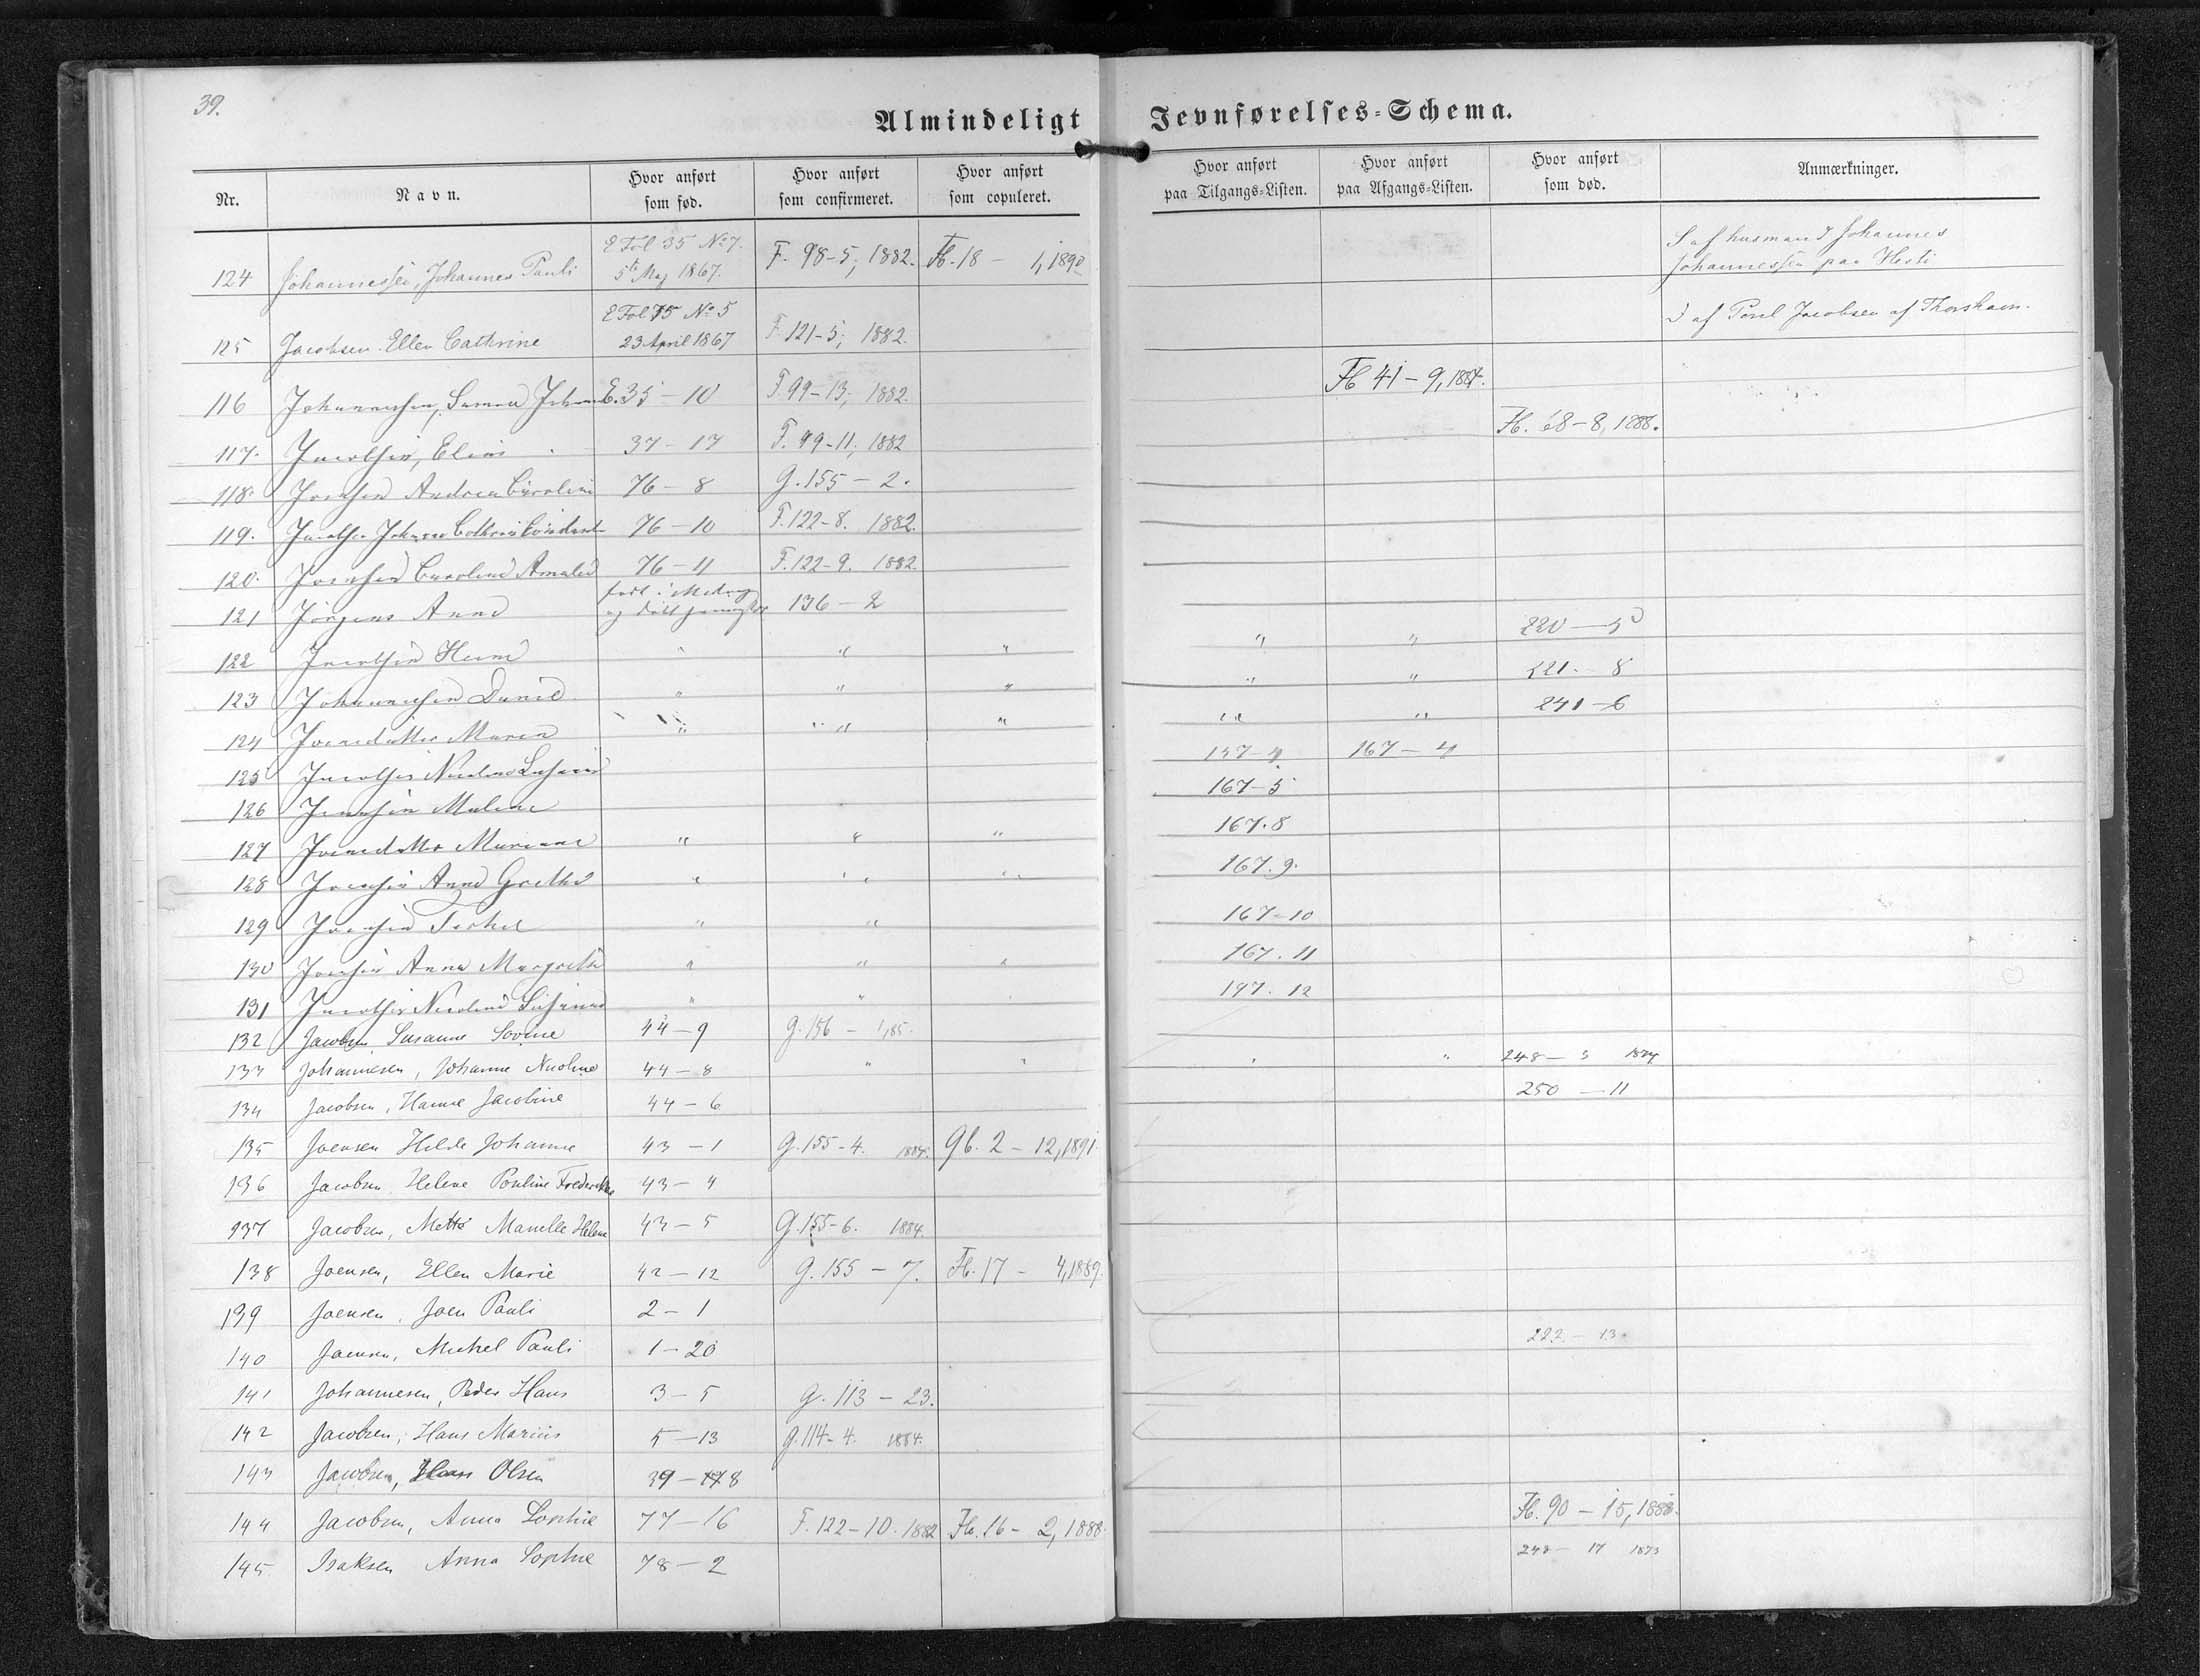 39.
Almindeligt Jevnførelses-Schema.
Nr. Navn. Hvor anført som fød. Hvor anført som confirmeret. Hvor anført som copuleret. Hvor anført paa Tilgangs-Listen. Hvor anført paa Afgangs-Listen. Hvor anført som død. Anmærkninger.
124 Johannessen, Johannes Pauli E Fol 35 No 7. 5te Maj 1867. F. 98-5, 1882. Fb. 18 - 1, 1890 S af husmand Johannes Johannessen paa Hesti
125 Jacobsen Ellen Cathrine E Fol 75 No 5 23 April 1867 F. 121-5; 1882. D af Poul Jacobsen af Thorshavn.
116 Johannesen, E. 35 - 10 F. 99-13; 1882. Fb 41 - 9, 1884.
117. Jacobsen, Elias 37 - 17 F. 99-11; 1882 Fb. 68-8, 1888.
118. Joensen Andrea Caroline 76 - 8 G. 155 - 2.
119. Jacobsen Johanne 76 - 10 F. 122-8. 1882.
120. Joensen Caroline Amalie 76 - 11 F. 122-9. 1882.
121 Jörgens Anne født i og døbt 136 - 2
122 Jacobsen " " " " " 220 - 5
123 Johannesen Daniel " " " " " 221 - 8
124 Joensdatter Maren " " " " " 241 - 6
125 Jacobsen 167 - 4
126 Joensen Malene 167-5
127 Joensdatter Mariane " " " 167. 8
128 Joensen Anne Grethe " " " 167. 9.
129 Joensen " " 167-10
130 Joensen Anna Margrethe " " " 167. 11
131 Jacobsen " " 197. 12
132 Jacobsen Susanne Sovine 44 - 9 G. 156 - 1, 85.
133 Johannesen, Johanne Nicoline 44 - 8 " " " " 248 - 3 1874
134 Jacobsen, Hanne Jacobine 44 - 6 250 - 11
135 Joensen Hilde Johanne 43 - 1 G. 155-4. 1884. Gb. 2 - 12, 1891
136 Jacobsen Helene Pouline Frederikke 43 - 4
137 Jacobsen, Mette Manelle Helene 43 - 5 G. 155-6. 1884.
138 Joensen, Ellen Marie 42 - 12 G. 155 - 7. Fb. 17 - 4, 1889.
139 Joensen, Joen Pauli 2 - 1
140 Joensen, Michel Pauli 1 - 20 222 - 13
141 Johannesen, Peder Hans 3 - 5 G. 113 - 23.
142 Jacobsen, Hans Marius 5 - 13 G. 114-4. 1884.
143 Jacobsen, Hans Olsen 39 - 8
144 Jacobsen, Anna Sophie 77 - 16 F. 122-10. 1882 Fb. 16 - 2, 1888. Fb. 90 - 15, 1888.
145 Isaksen Anna Sophie 78 - 2 248 - 17 1873